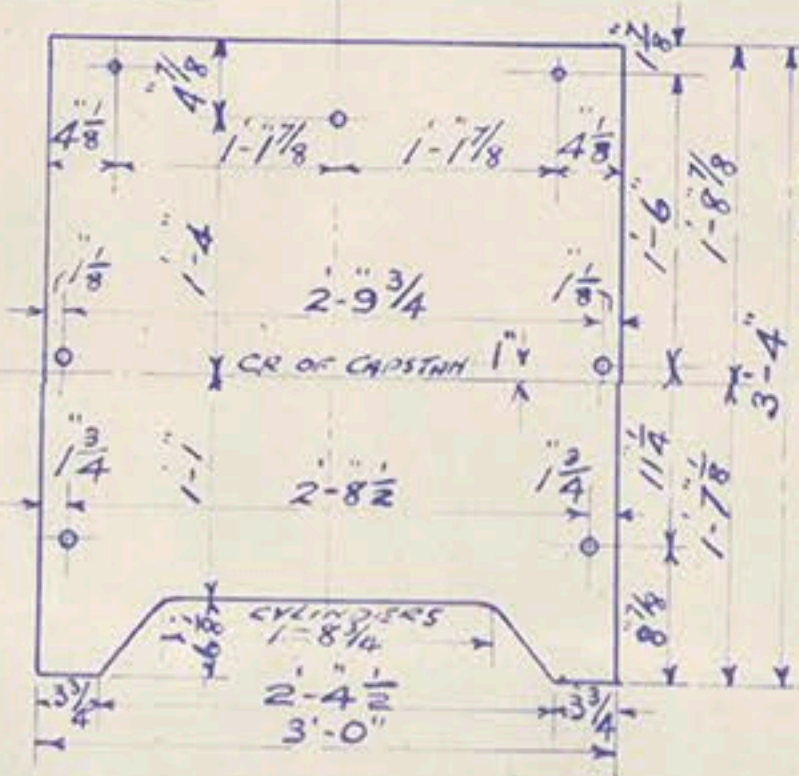 1 7/8"
4 7/8"
4 1/8"
1'-1 7/8"
1'-1 7/8"
4 1/8"
1'-6"
1'-8 7/8"
1 1/8"
1'-4"
2'-9 3/4"
1 1/8"
CR OF CAPSTAN 1"
3'-4"
1 3/4"
1'-1"
2'-8 1/2"
1 3/4"
11 1/4"
1'-7 1/8"
CYLINDERS
1'-8 3/4"
8 7/8"
3 3/4
2'-4 1/2"
3 3/4
3'-0"